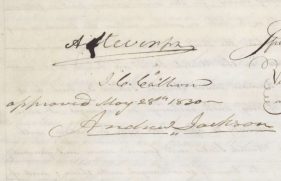 A. Stevenson
J. C. Calhoun
approved May 28th 1830
Andrew Jackson